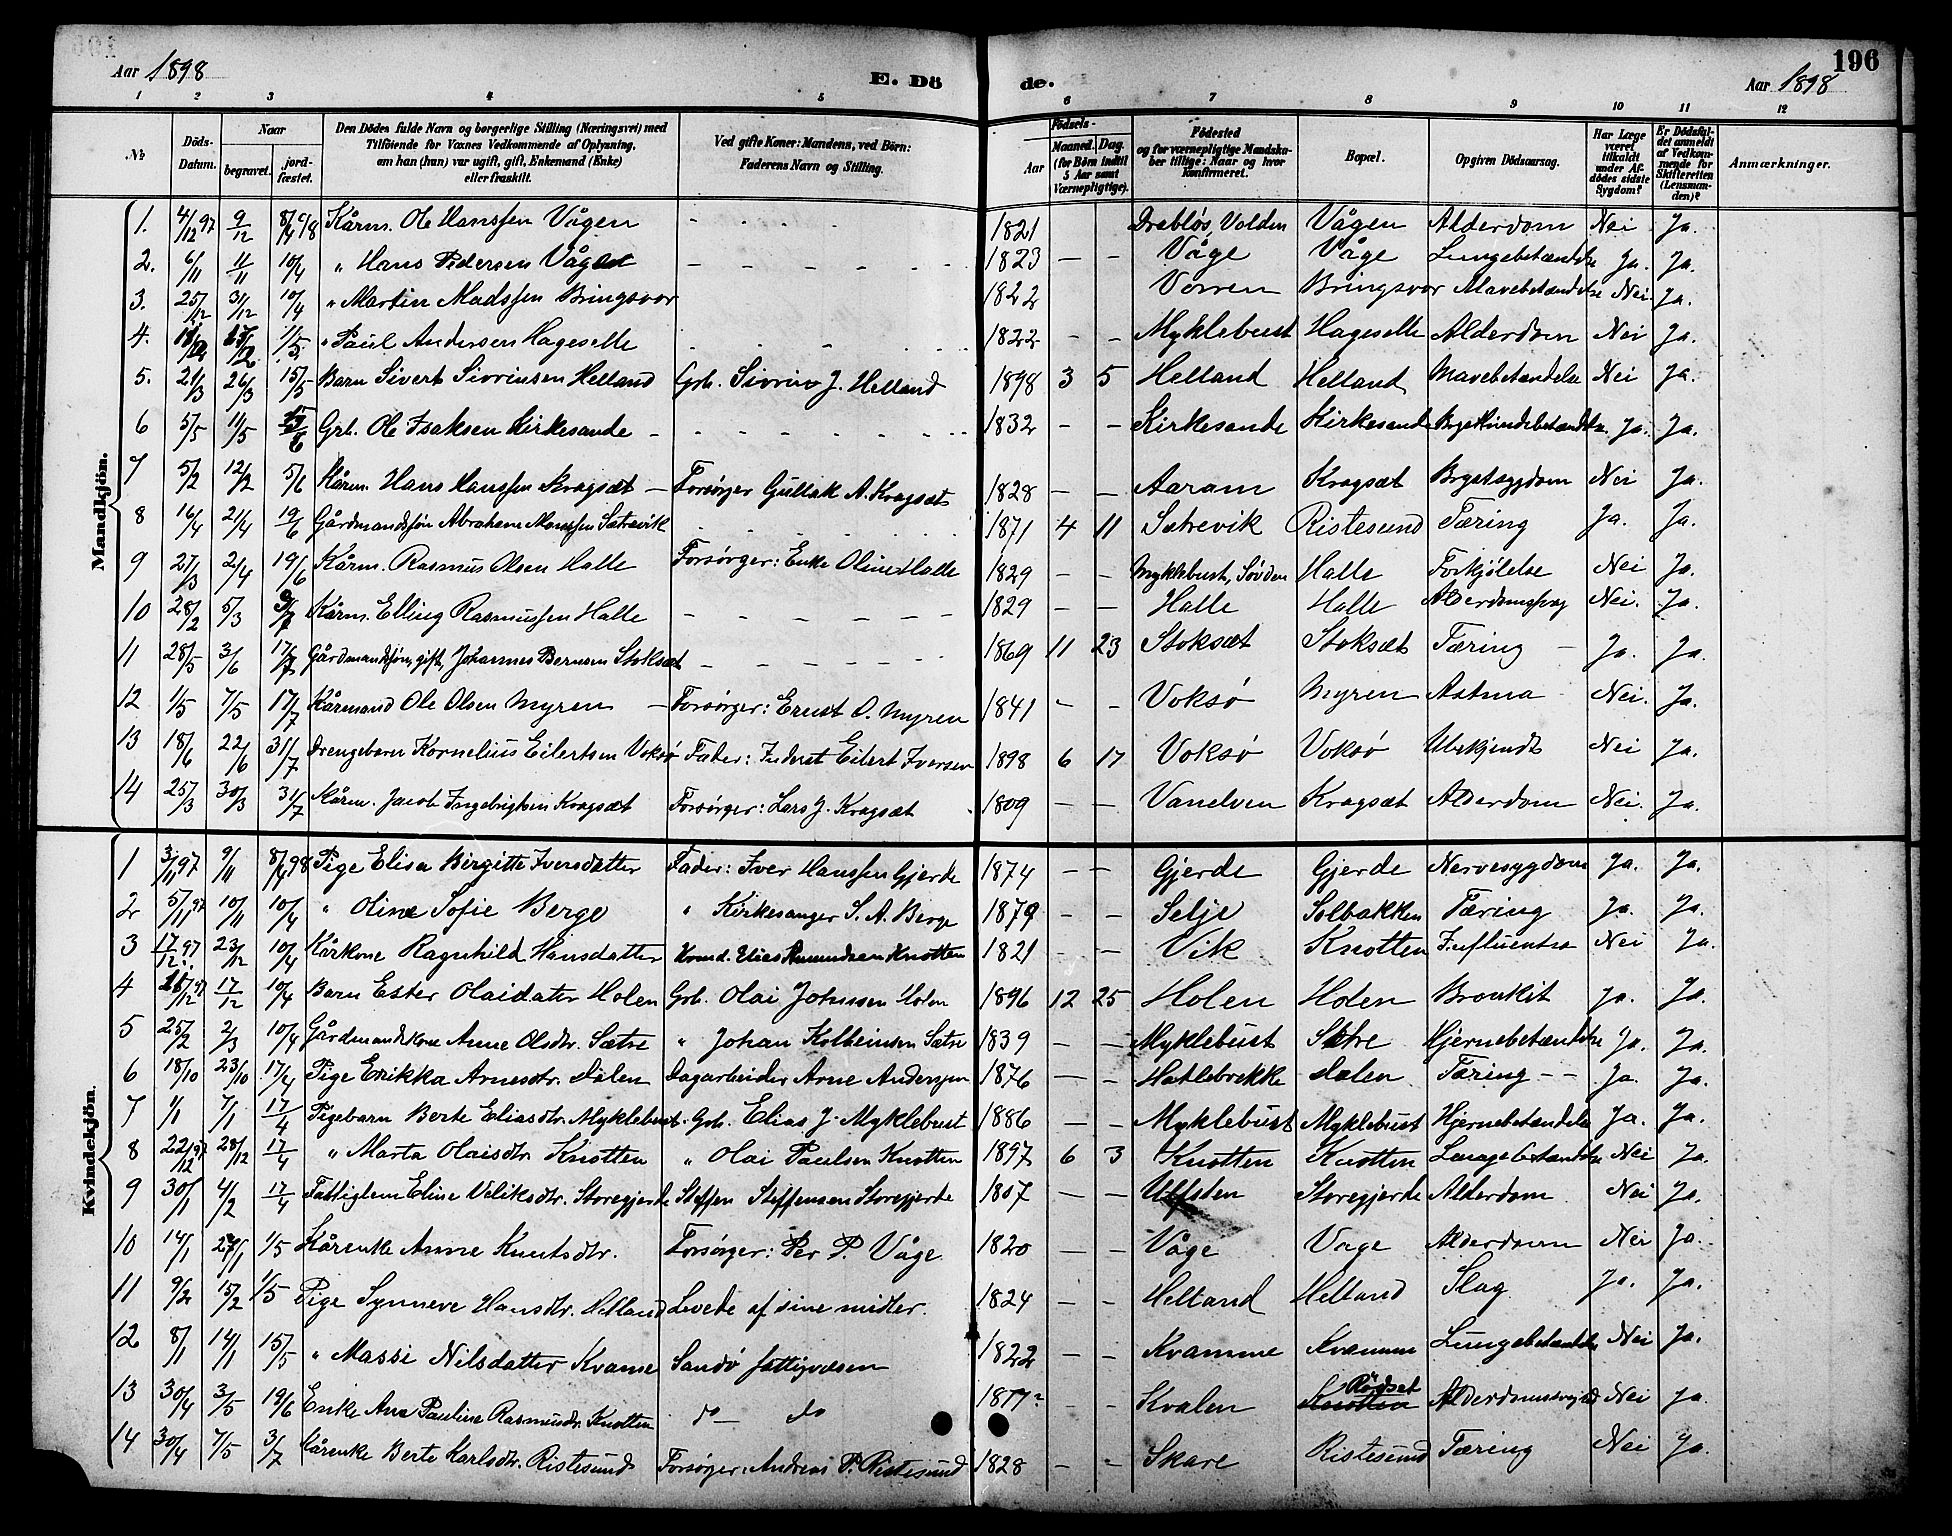 Aar 1898 E. Dö de. Aar 1898 196
1 2 3 4 5 6 7 8 9 10 11 12
No
Döds-Datum.
Naar
begravet.
jord-fæstet.
Den Dödes fulde Navn og borgerlige Stilling (Næringsvei) med
Tilföiende for Voxnes Vedkommende af Oplysning,
om han (hun) var ugift, gift, Enkemand (Enke)
eller fraskilt.
Ved gifte Koner: Mandens, ved Börn:
Faderens Navn og Stilling.
Födsels-
Aar
Maaned. Dag.
(for Börn indtil 5 Aar samt Værnepligtige).
Födested
og for værnepligtige Mandskaber tillige: Naar og hvor konfirmeret.
Bopæl.
Opgiven Dödsaarsag.
Har Læge været tilkaldt under Afdödes sidste Sygdom?
Er Dödsfaldet anmeldt af Vedkommende for Skifteretten (Lensmanden)?
Anmærkninger.
Mandkjön.
1. 4/12 97 9/12 8/4 98 Kårm. Ole Hanssen Vågen - - - - 1821 Drabløs, Volden Vågen Alderdom Nei Ja.
2. 6/11 11/11 10/4 " Hans Pedersen Våge - - - - 1823 - - Våge Våge Lungebetændelse Ja. Ja.
3. 25/12 31/12 10/4 " Martin Madssen Bringsvor 1822 Vorren Bringsvor Mavebetændelse Nei Ja.
4. 1/5 " Paul Andersen Hageselle - - - 1822 - - Myklebust Hageselle Alderdom Nei Ja.
5. 21/3 26/3 15/5 Barn Sivert Sivrinsen Helland Grb. Sivrin J. Helland 1898 3 5 Helland Helland Mavebetændelse Nei Ja.
6 5/5 11/5 Grb. Ole Isaksen Kirkesande - - - - 1832 - - Kirkesande Kirkesande Brysthindebetændelse Ja. Ja.
7 5/2 12/2 5/6 Kårm. Hans Hanssen Kragsæt - Forsørger Gullak A. Kragsæt 1828 - - Aaram Kragsæt Brystsygdom Nei Ja.
8 16/4 21/4 19/6 Gårdmandssøn Abraham Monssen Sætrevik 1871 4 11 Sætrevik Ristesund Tæring Ja. Ja.
9 27/3 2/4 19/6 Kårm. Rasmus Olsen Halle Forsørger: Enke Oline Halle 1829 - - Myklebust, Søvden Halle Forkjølelse Nei Ja.
10 28/2 5/3 3/7 Kårm. Elling Rasmussen Halle - - - - 1829 - - Halle Halle Alderdomssvag Nei. Ja.
11 28/5 3/6 17/7 Gårdmandssøn, gift, Johannes Bernsen Stoksæt - - - - 1869 11 23 Stoksæt Stoksæt Tæring - Ja. Ja.
12 1/5 7/5 17/7 Kårmand Ole Olsen Myren - Forsørger: Ernst O. Myren 1841 - - Voksø Myren Astma Nei. Ja.
13 18/6 22/6 31/7 Drengebarn Kornelius Eilertsen Voksø Fader: Inderst Eilert Iversen 1898 6 17 Voksø Voksø Ubekjendt Nei Ja.
14 25/3 30/3 31/7 Kårm. Jacob Ingebrigtsen Kragsæt Forsørger: Lars J. Kragsæt 1809 - - Vanelven Kragsæt Alderdom Nei. Ja.
Kvindekjön.
1 3/11 97 9/11 8/4 98 Pige Elisa Birgitte Iversdatter Fader: Iver Hanssen Gjerde 1874 - - Gjerde Gjerde Nervesygdom Ja. Ja.
2 5/11 97 10/11 10/4 " Oline Sofie Berge " Kirkesanger S. A. Berge 1879 - - Selje Solbakken Tæring Ja. Ja.
3 17/12 97 23/12 10/4 Kårkone Ragnhild Hansdatter Kårmd. Elias Knotten 1821 - - Vik Knotten Influentsa Nei Ja.
4 17/12 10/4 Barn Ester Olaidatr Holen Grb. Olai Johnsen Holen 1896 12 25 Holen Holen Bronkit Ja. Ja.
5 25/2 2/3 10/4 Gårdmandskone Anne Olsdtr. Sætre " Johan Kolbeinsen Sætre 1839 - - Myklebust Sætre Hjernebetændelse Ja. Ja.
6 18/10 23/10 17/4 Pige Erikka Arnesdtr. Dalen Dagarbeider Arne Anderssen 1876 - - Hatlebrekke Dalen Tæring - - Ja. Ja.
7 1/1 7/1 17/4 Pigebarn Berte Eliasdtr. Myklebust. Grb. Elias J. Myklebust 1886 - - Myklebust Myklebust Hjernebetændelse Ja. Ja.
8 22/12 97 28/12 17/4 " Marta Olaisdtr Knotten " Olai Paulsen Knotten 1897 6 3 Knotten Knotten Lungebetændelse Nei Ja.
9 30/1 4/2 17/4 Fattiglem Eline Veliksdtr. Storegjerde Steffen Steffensen Storegjerde 1807 - - Ulfsten Storegjerde Alderdom Nei Ja.
10 14/1 1/5 Kårenke Anne Knutsdtr. Forsørger: Per P. Våge 1820 - - Våge Vage Alderdom Nei Ja.
11 9/2 15/2 1/5 Pige Synneve Hansdtr. Helland Levede af sine midler. 1824 - - Helland Helland Slag Ja. Ja.
12 8/1 14/1 15/5 " Massi Nilsdatter Kvame Sandø fattigvæsen 1822 - - Kvamme Kvamme Lungebetændelse Nei Ja.
13 30/4 3/5 19/6 Enke Ane Pauline Rasmusdr. Knotten do - do - - Kvalen Knotten Rødset Nei Ja.
14 30/4 7/5 3/7 Kårenke Berte Karlsdtr. Ristesund Forsørger: Andreas P. Ristesund 1828 - - Skare Ristesund Tæring Nei Ja.